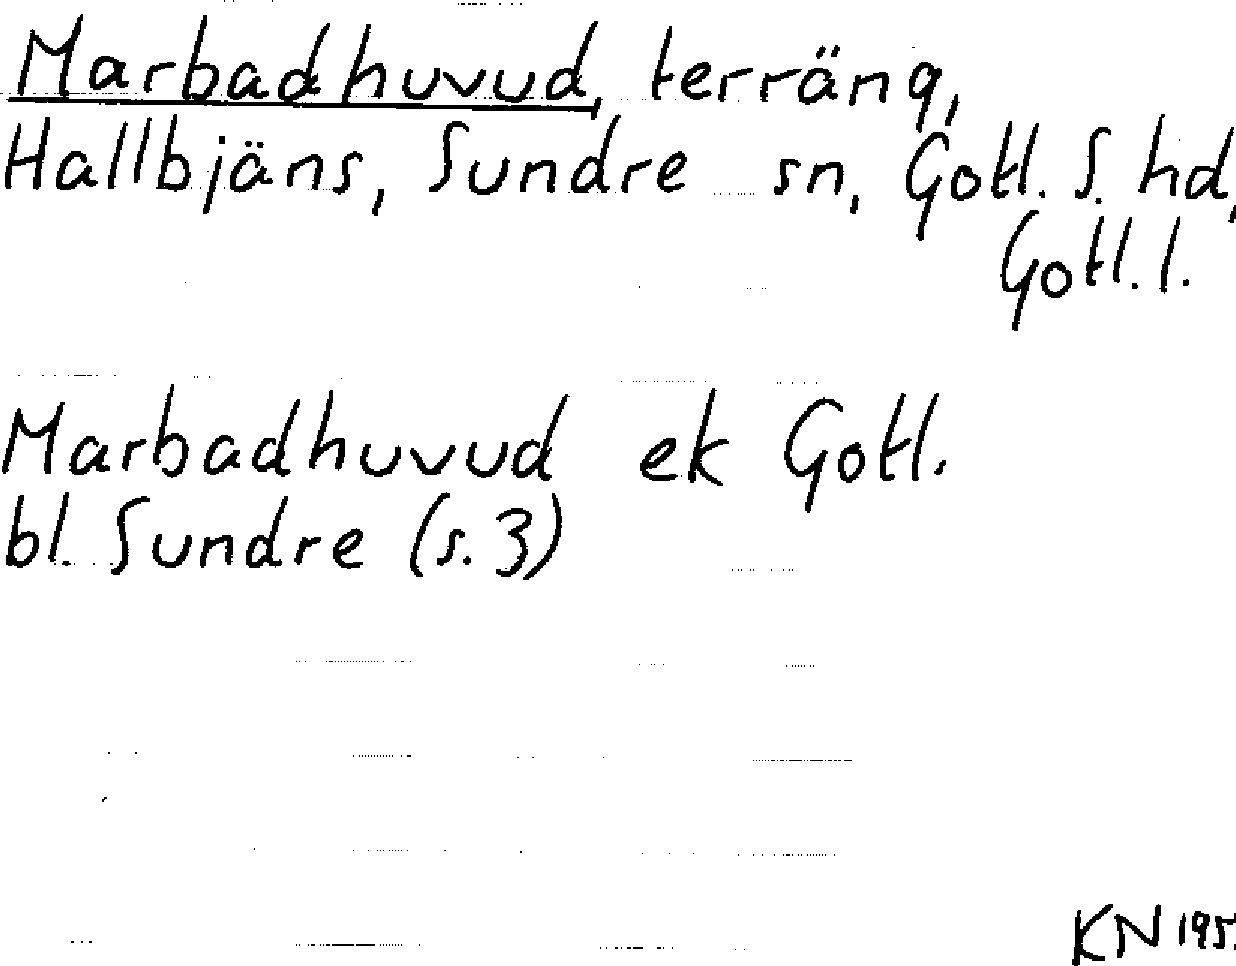 Marbadhuvud, terräng,
Hallbjäns, Sundre sn, Gotl. S. hd,
Gotl. l.
Marbadhuvud ek Gotl.
bl. Sundre (s. 3)
KN 195.